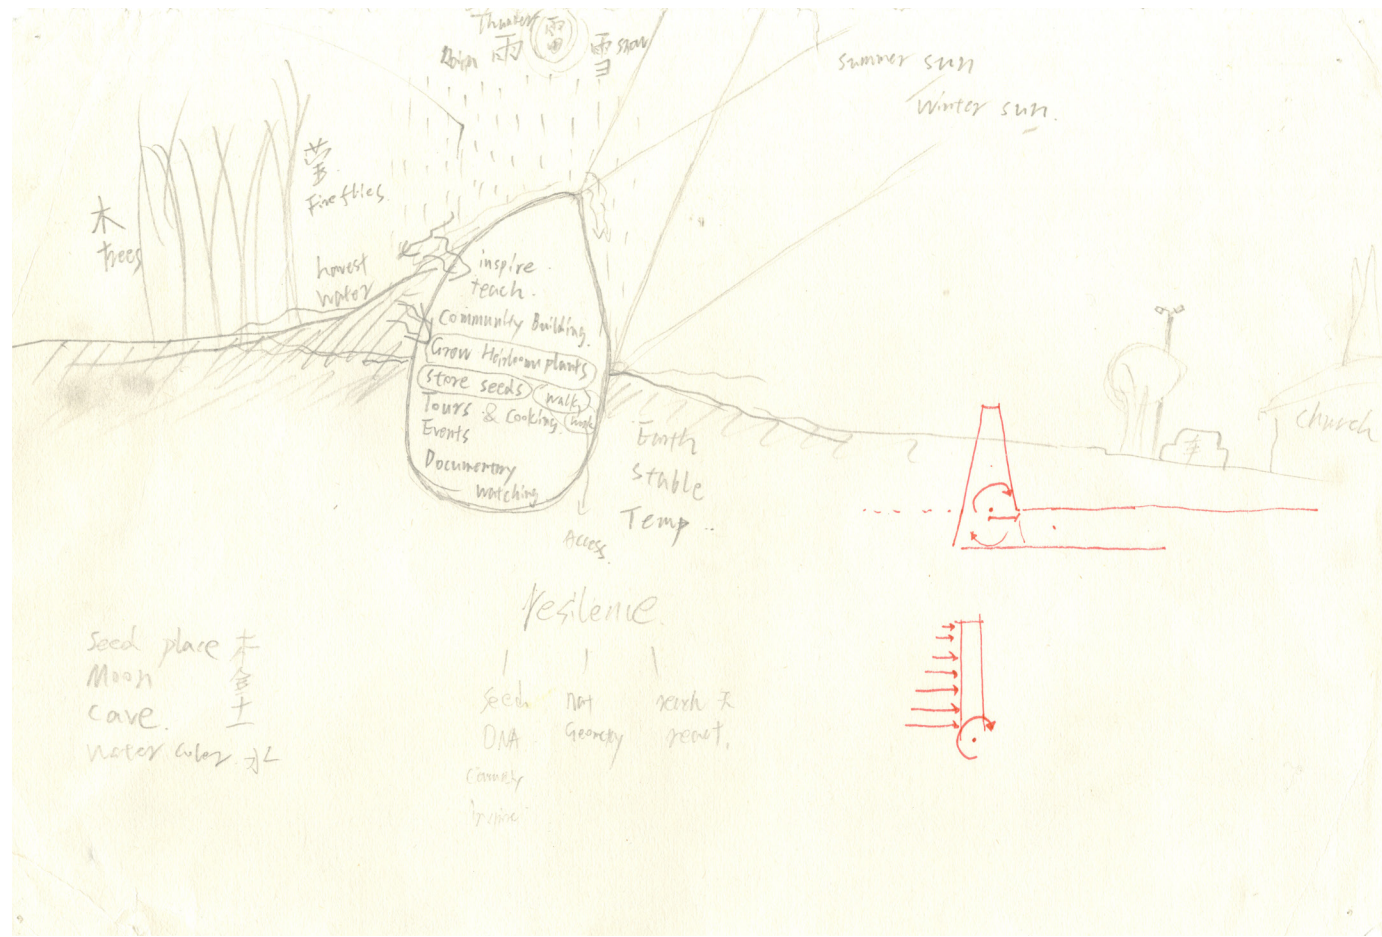 Thunder 雷
Rain 雨
雪 snow
summer sun
winter sun.
萤
Fireflies.
木
trees
harvest
water
inspire.
teach.
Community Building.
Grow Heirloom plants
store seeds
walk,
Tours & Cooking.
Events
Documentary
watching
Earth
stable
Temp ..
Access.
车
church
resilence.
seed
DNA
Geometry
react.
seed place 木
Moon 金
cave. 土
water color 水